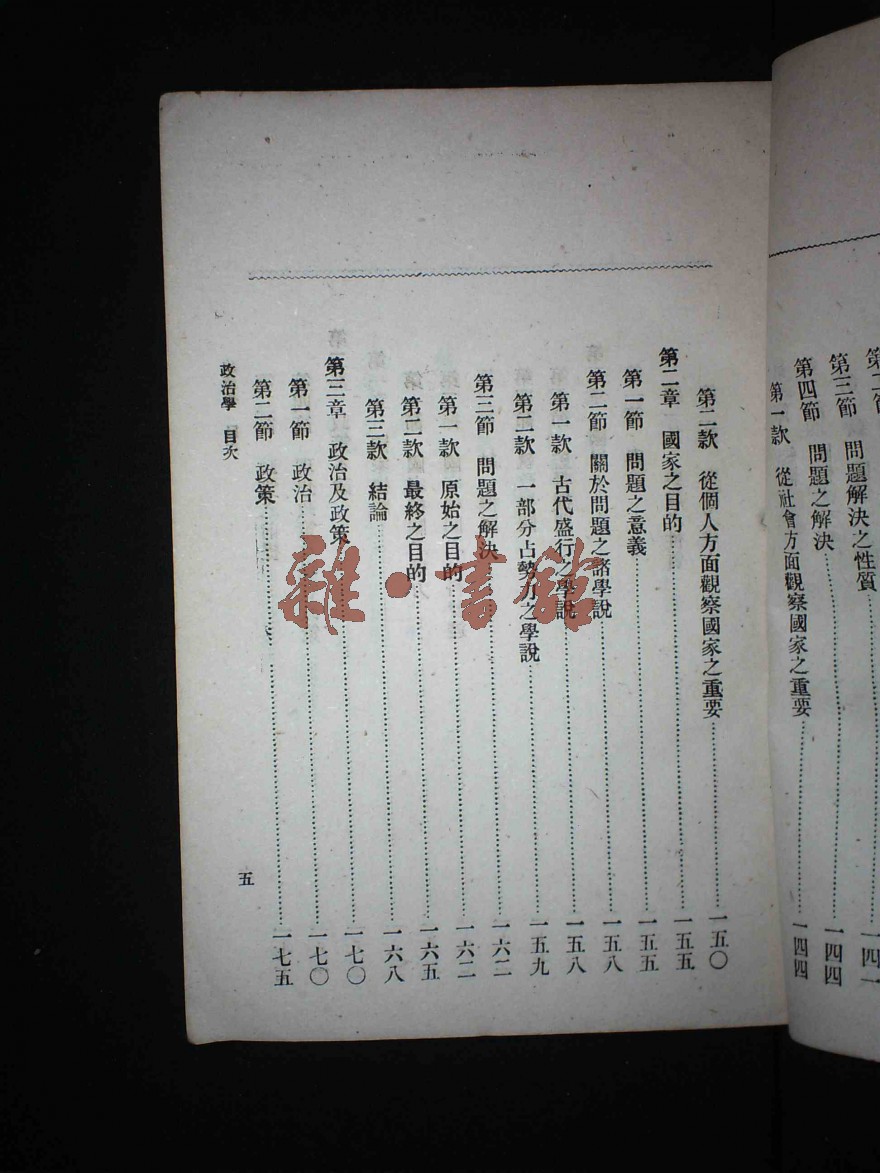 第三節　問題解決之性質……一四一
第四節　問題之解決……一四四
第一款　從社會方面觀察國家之重要……一四四
第二款　從個人方面觀察國家之重要……一五〇
第二章　國家之目的……一五五
第一節　問題之意義……一五五
第二節　關於問題之諸學說……一五八
第一款　古代盛行之學說……一五八
第二款　一部分占勢力之學說……一五九
第三節　問題之解決……一六二
第一款　原始之目的……一六二
第二款　最終之目的……一六五
第三款　結論……一六八
第三章　政治及政策……一七〇
第一節　政治……一七〇
第二節　政策……一七五
政治學　目次
五
雜·書館